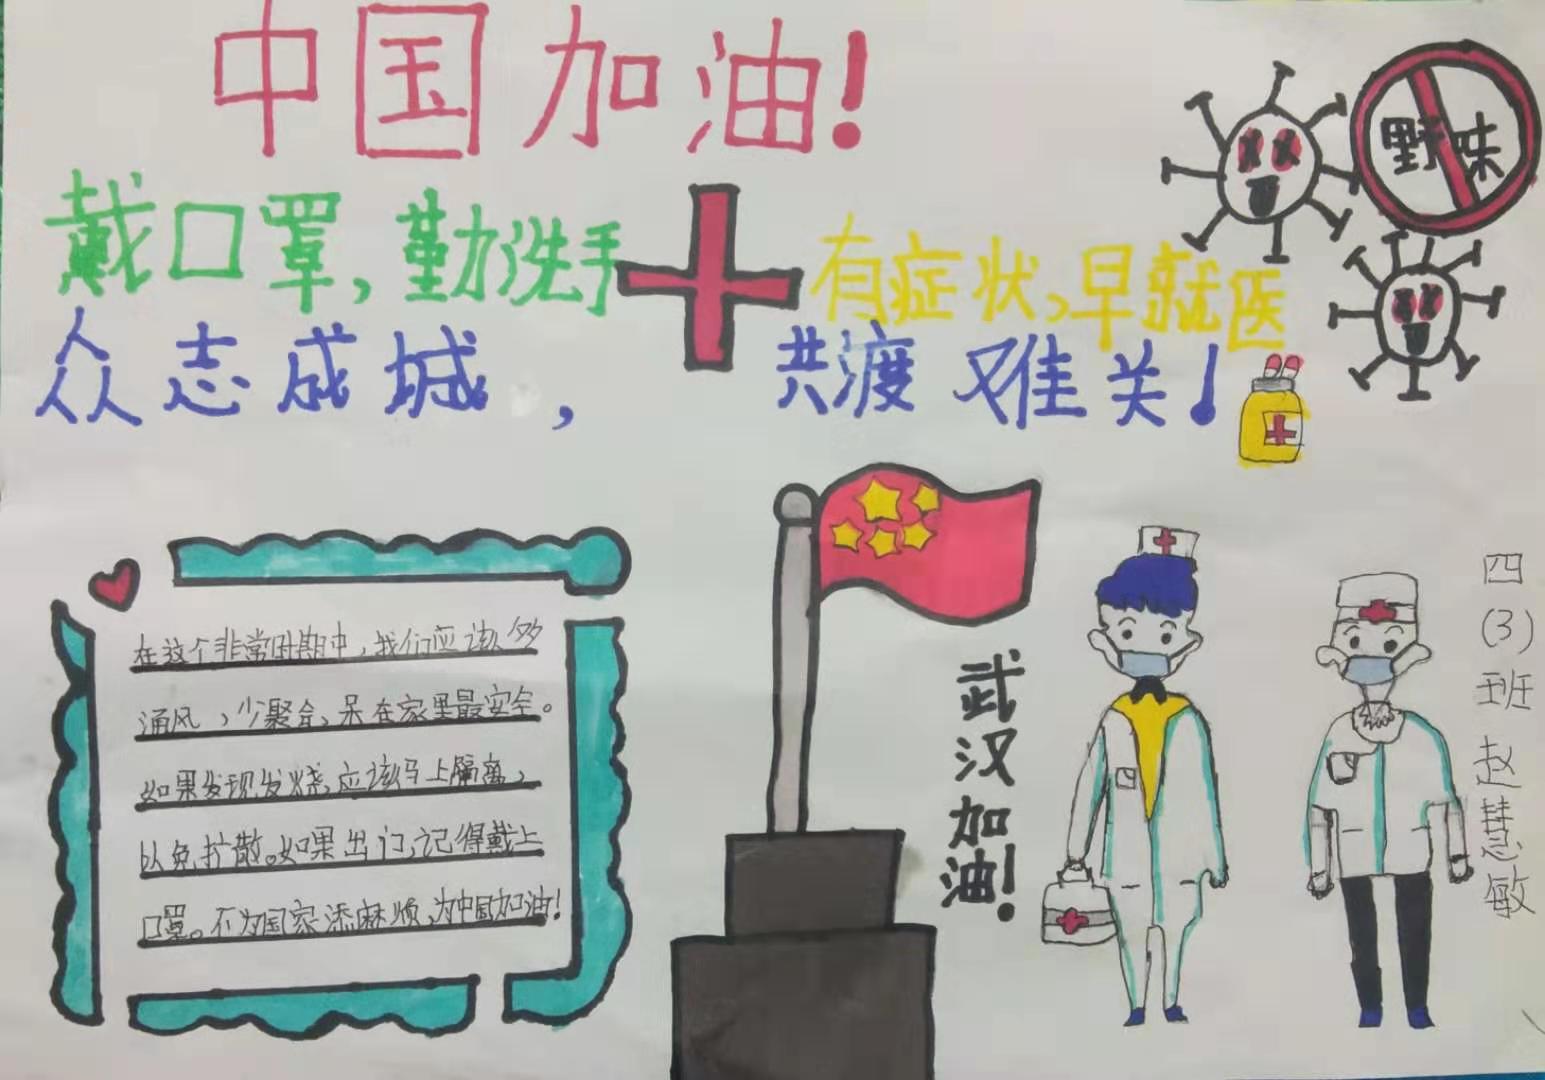 中国加油!
戴口罩,勤洗手
有症状,早就医
众志成城,
共渡难关!
野味
在这个非常时期中,我们应该多
通风,少聚会,呆在家里最安全。
如果发现发烧,应该马上隔离,
以免扩散。如果出门,记得戴上
口罩。不为国家添麻烦,为中国加油!
武汉加油!
四(3)班 赵慧敏